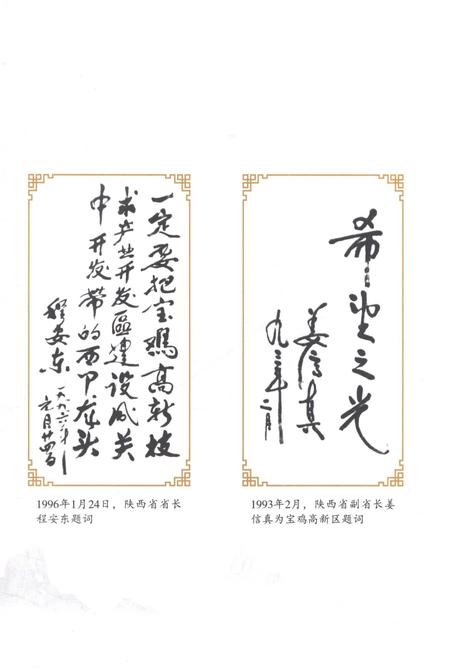 一定要把宝鸡高新技
术产业开发區建设成关
中开发带的西甲龙头
程安东
一九九六年
元月廿四日
1996年1月24日，陕西省省长
程安东题词
希望之光
姜信真
九三年二月
1993年2月，陕西省副省长姜
信真为宝鸡高新区题词